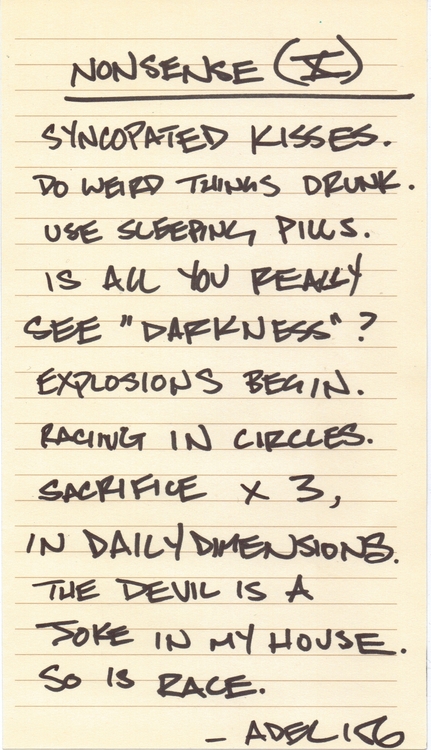 NONSENSE (X)
SYNCOPATED KISSES.
DO WEIRD THINGS DRUNK.
USE SLEEPING PILLS.
IS ALL YOU REALLY
SEE "DARKNESS"?
EXPLOSIONS BEGIN.
RACING IN CIRCLES.
SACRIFICE X 3,
IN DAILY DIMENSIONS.
THE DEVIL IS A
JOKE IN MY HOUSE.
SO IS RACE.